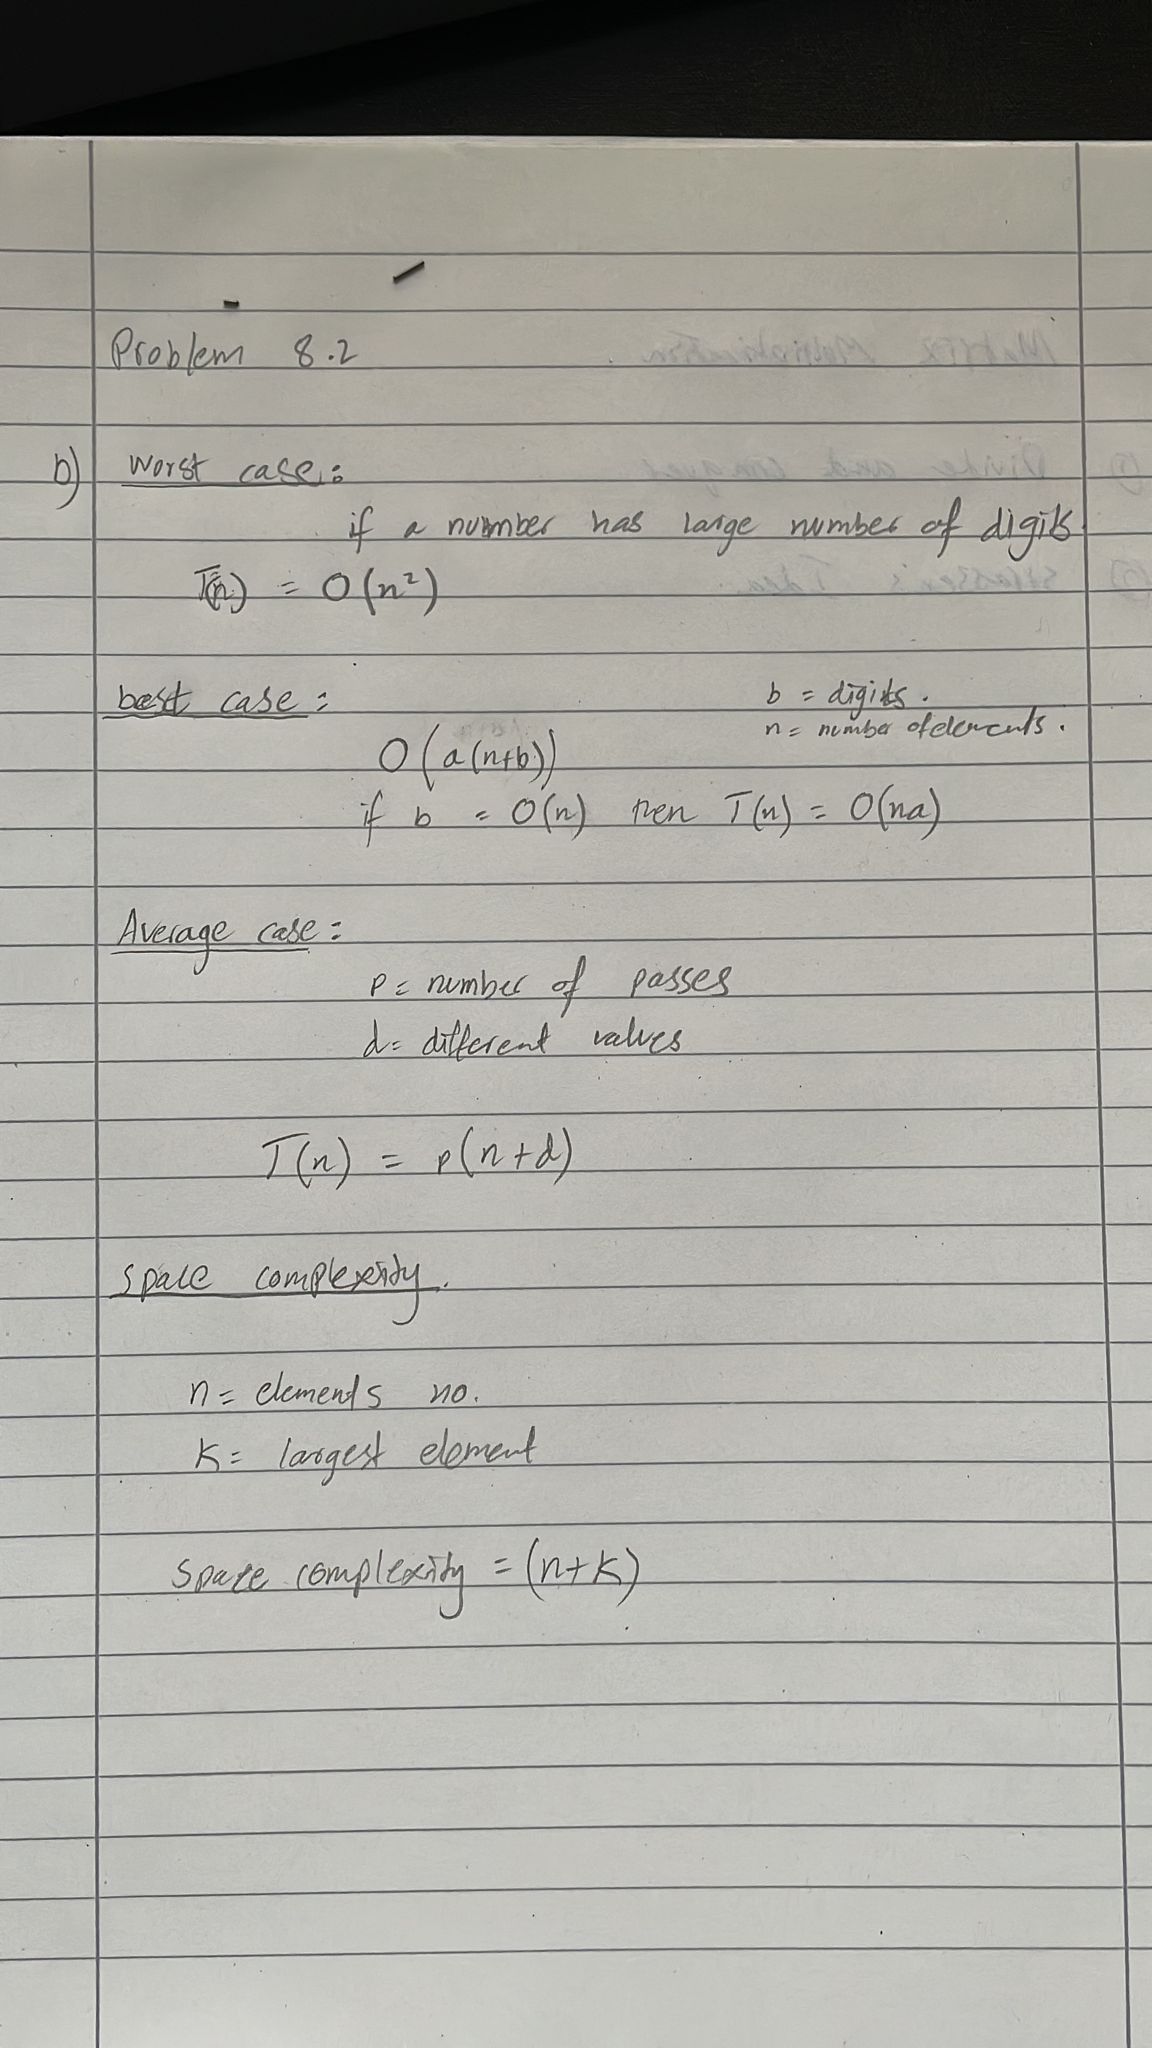 Problem 8.2
b) Worst case:
if a number has large number of digits
T(n) = O(n²)
best case:
b = digits.
n = number of elements.
O(a(n+b))
if b = O(n) then T(n) = O(na)
Average case:
P = number of passes
d = different values
T(n) = p(n+d)
space complexity.
n = elements no.
K = largest element
space complexity = (n+K)